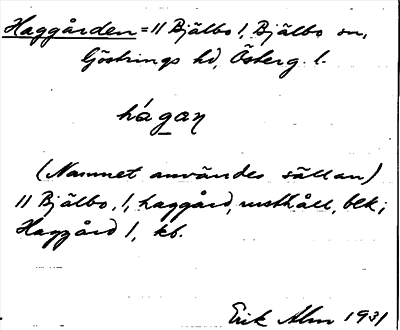 Haggården = 11 Bjälbo /, Bjälbo sn,
Göstrings hd, Österg. l.
hágaṇ
(Namnet användes sällan)
11 Bjälbo, /, haggård, rusthåll, blk;
Haggård /, kb.
Erik Alm 1931